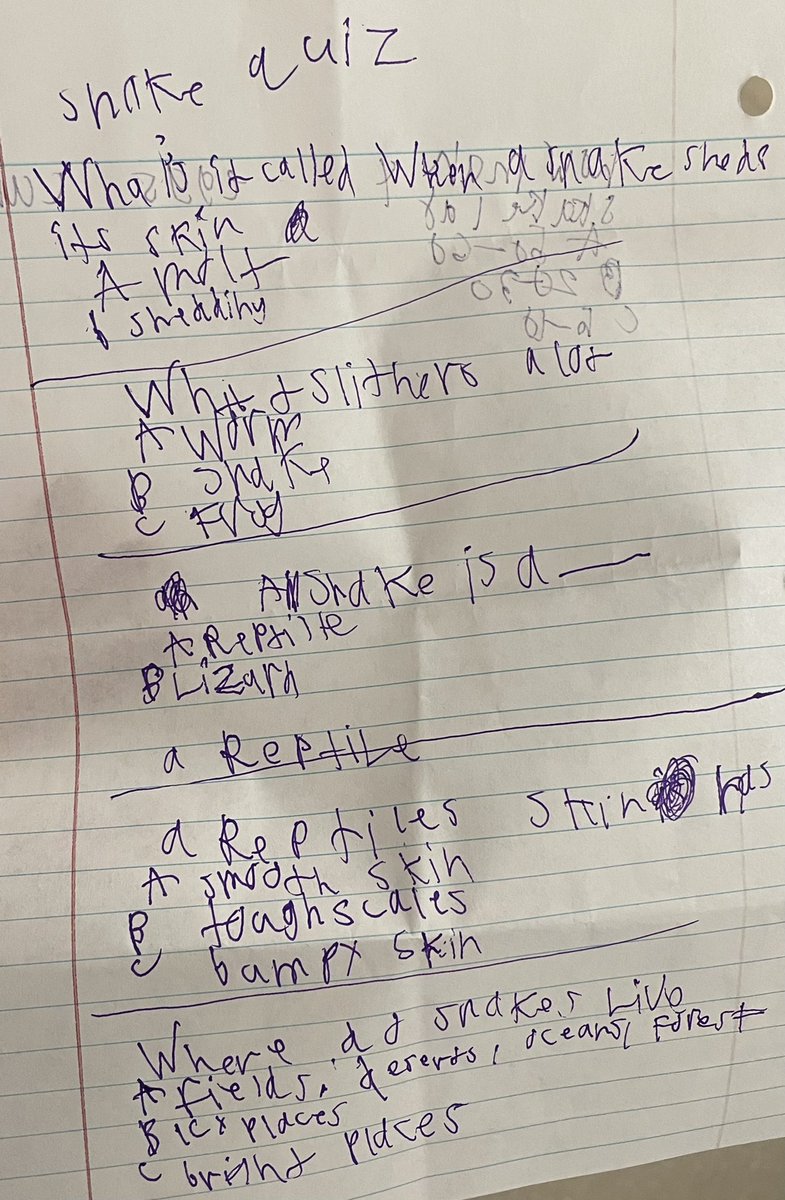 snake quiz
What is it called When a snake sheds
its skin
A molt
B shedding
What slithers a lot
A Worm
B Snake
C Frog
A Snake is a —
A Reptile
B Lizard
a Reptile
a Reptiles skin has
A smooth skin
B tough scales
C bampy skin
Where do snakes Live
A fields, deserts, oceans, Forest
B icy places
C bright places